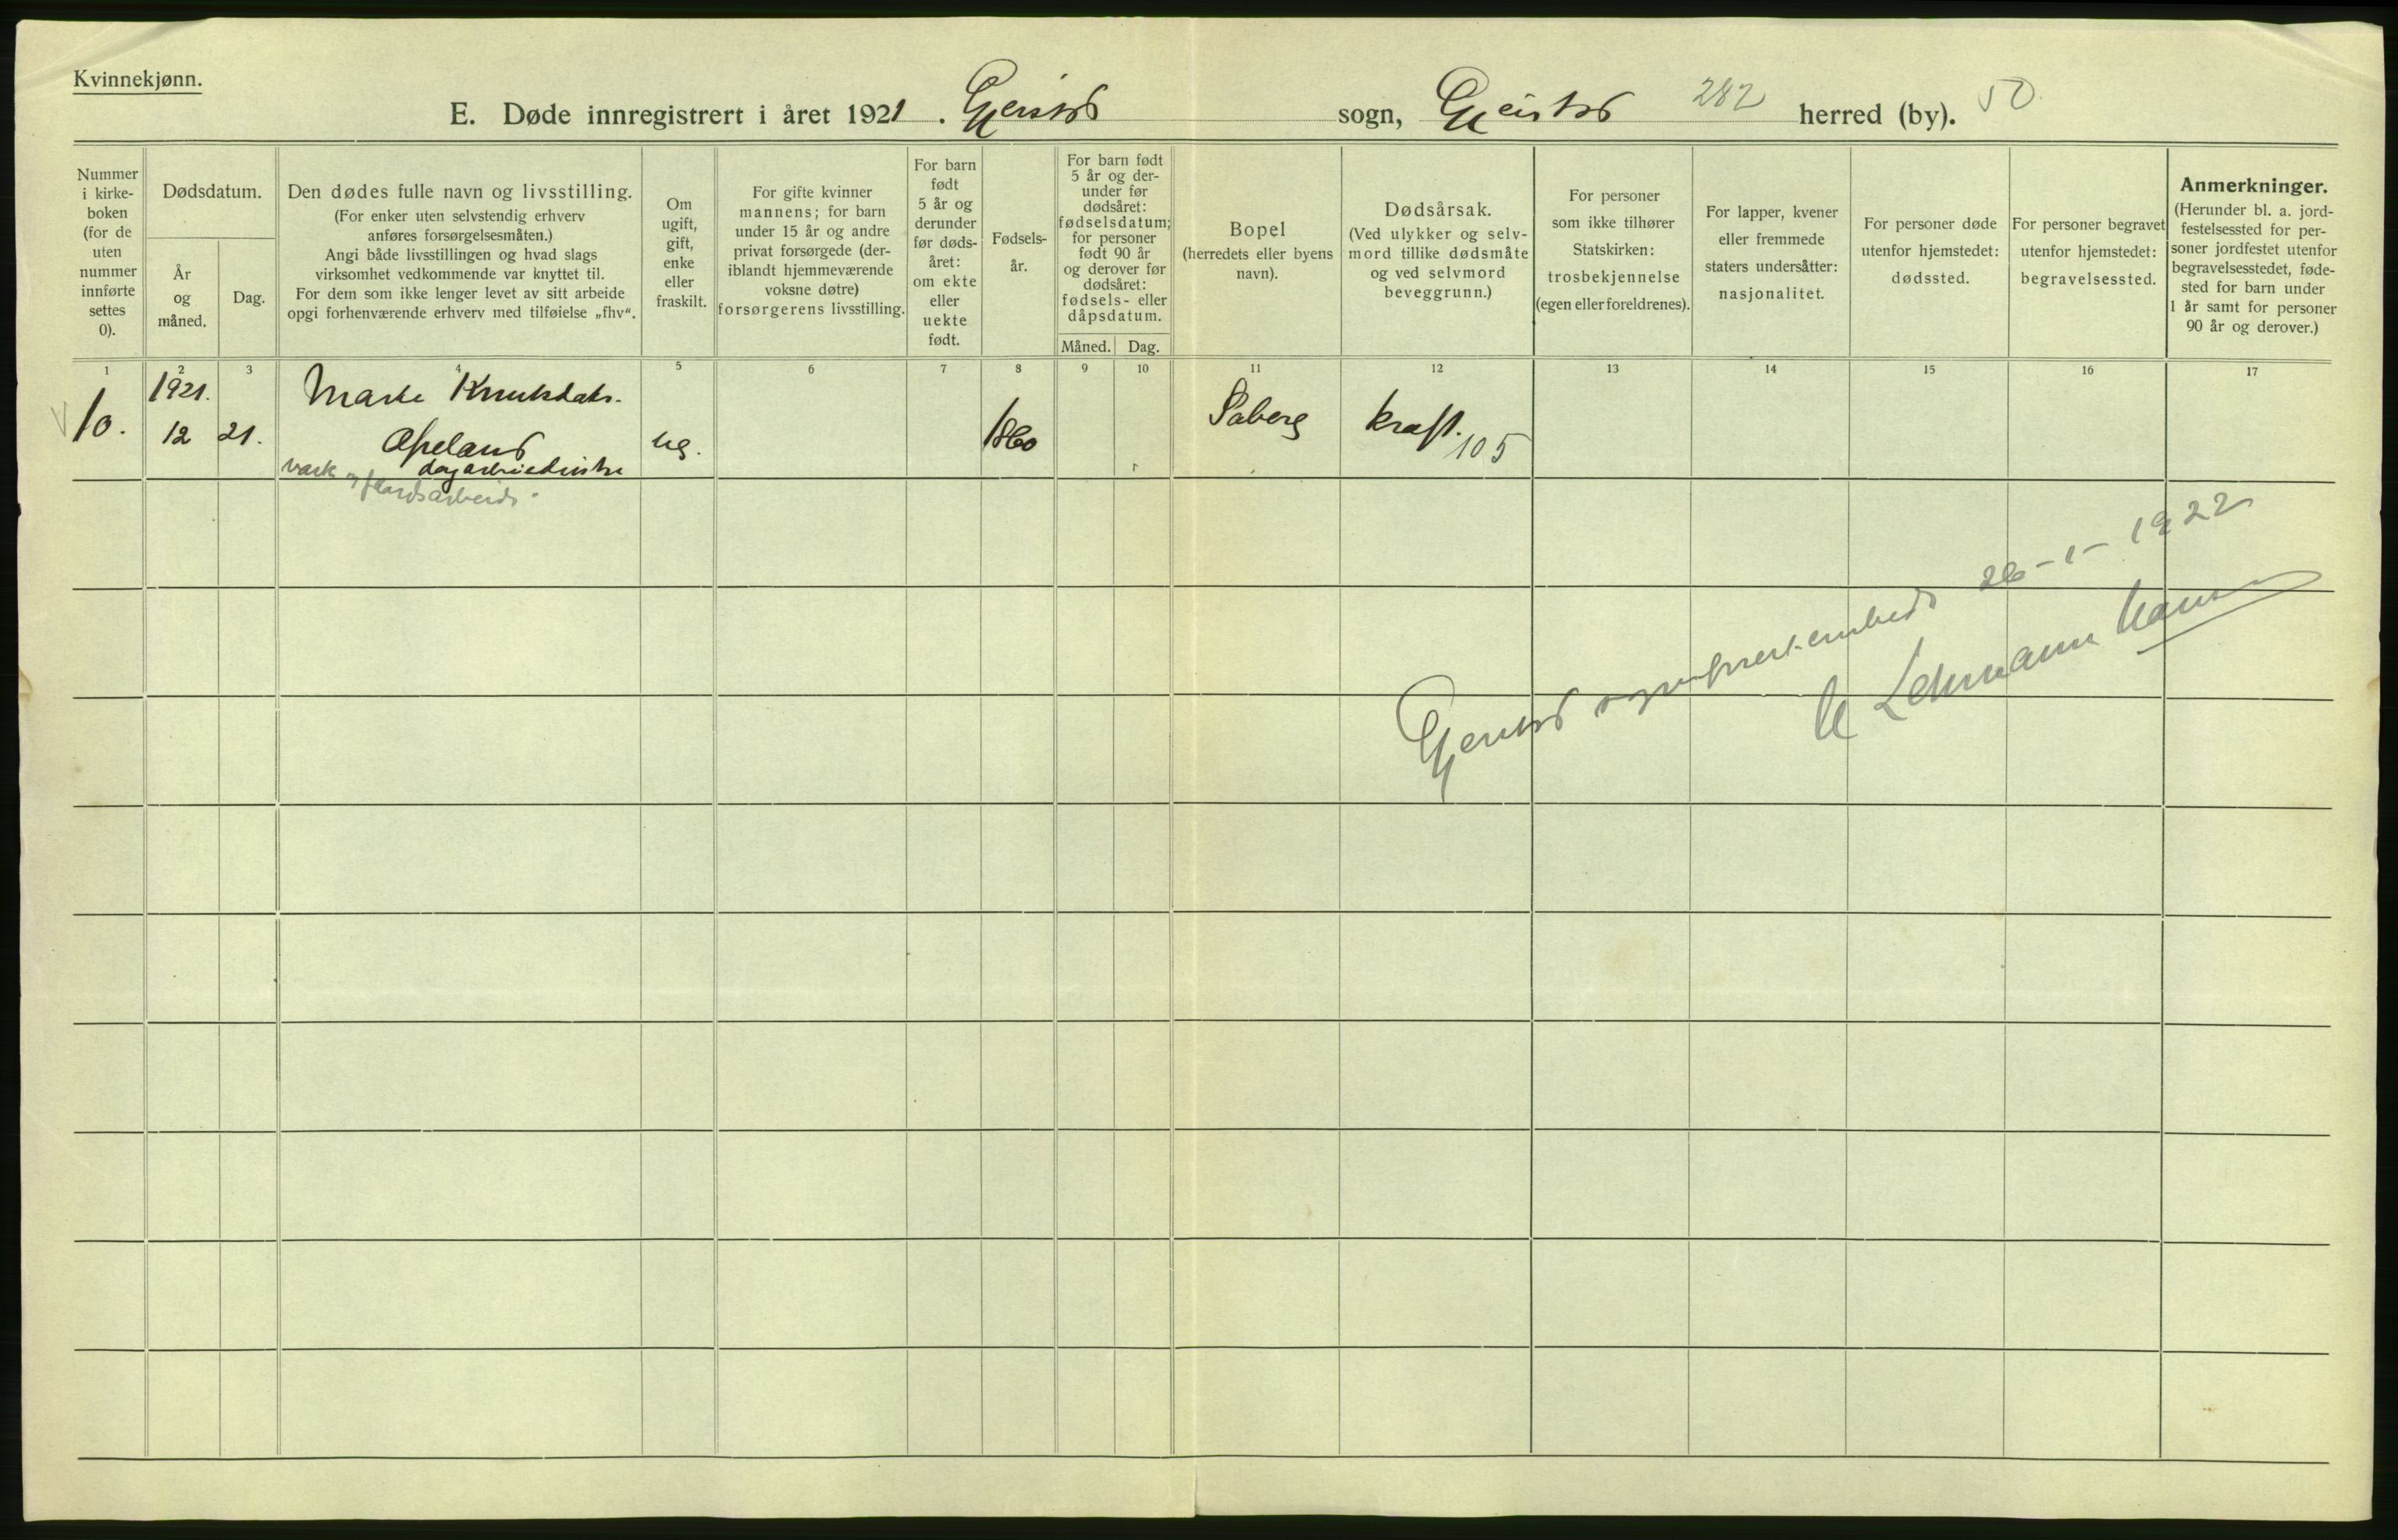 Kvinnekjønn.
E. Døde innregistrert i året 1921. Gjerstad sogn, Gjerstad 282 herred (by). 50
Nummer i kirke-boken (for de uten nummer innførte settes 0).
Dødsdatum.
År og måned.
Dag.
Den dødes fulle navn og livsstilling.
(For enker uten selvstendig erhverv anføres forsørgelsesmåten.)
Angi både livsstillingen og hvad slags virksomhet vedkommende var knyttet til.
For dem som ikke lenger levet av sitt arbeide opgi forhenværende erhverv med tilføielse „fhv“.
Om ugift, gift, enke eller fraskilt.
For gifte kvinner mannens; for barn under 15 år og andre privat forsørgede (der-iblandt hjemmeværende voksne døtre) forsørgerens livsstilling.
For barn født 5 år og derunder før døds-året: om ekte eller uekte født.
Fødsels-år.
For barn født 5 år og der-under før dødsåret: fødselsdatum; for personer født 90 år og derover før dødsåret: fødsels- eller dåpsdatum.
Måned.
Dag.
Bopel (herredets eller byens navn).
Dødsårsak.
(Ved ulykker og selv-mord tillike dødsmåte og ved selvmord beveggrunn.)
For personer som ikke tilhører Statskirken: trosbekjennelse (egen eller foreldrenes).
For lapper, kvener eller fremmede staters undersåtter: nasjonalitet.
For personer døde utenfor hjemstedet: dødssted.
For personer begravet utenfor hjemstedet: begravelsessted.
Anmerkninger.
(Herunder bl. a. jord-festelsessted for per-soner jordfestet utenfor begravelsesstedet, føde-sted for barn under 1 år samt for personer 90 år og derover.)
1 2 3 4 5 6 7 8 9 10 11 12 13 14 15 16 17
10.
1921.
12 21.
Marte Knutsdatr.
Apeland
dagarbeiderske
vask og gårdsarbeide.
ug.
1860
kræft.
105
Gjerstad sogneprestembede 26-1-1922
Lehmann Hansen